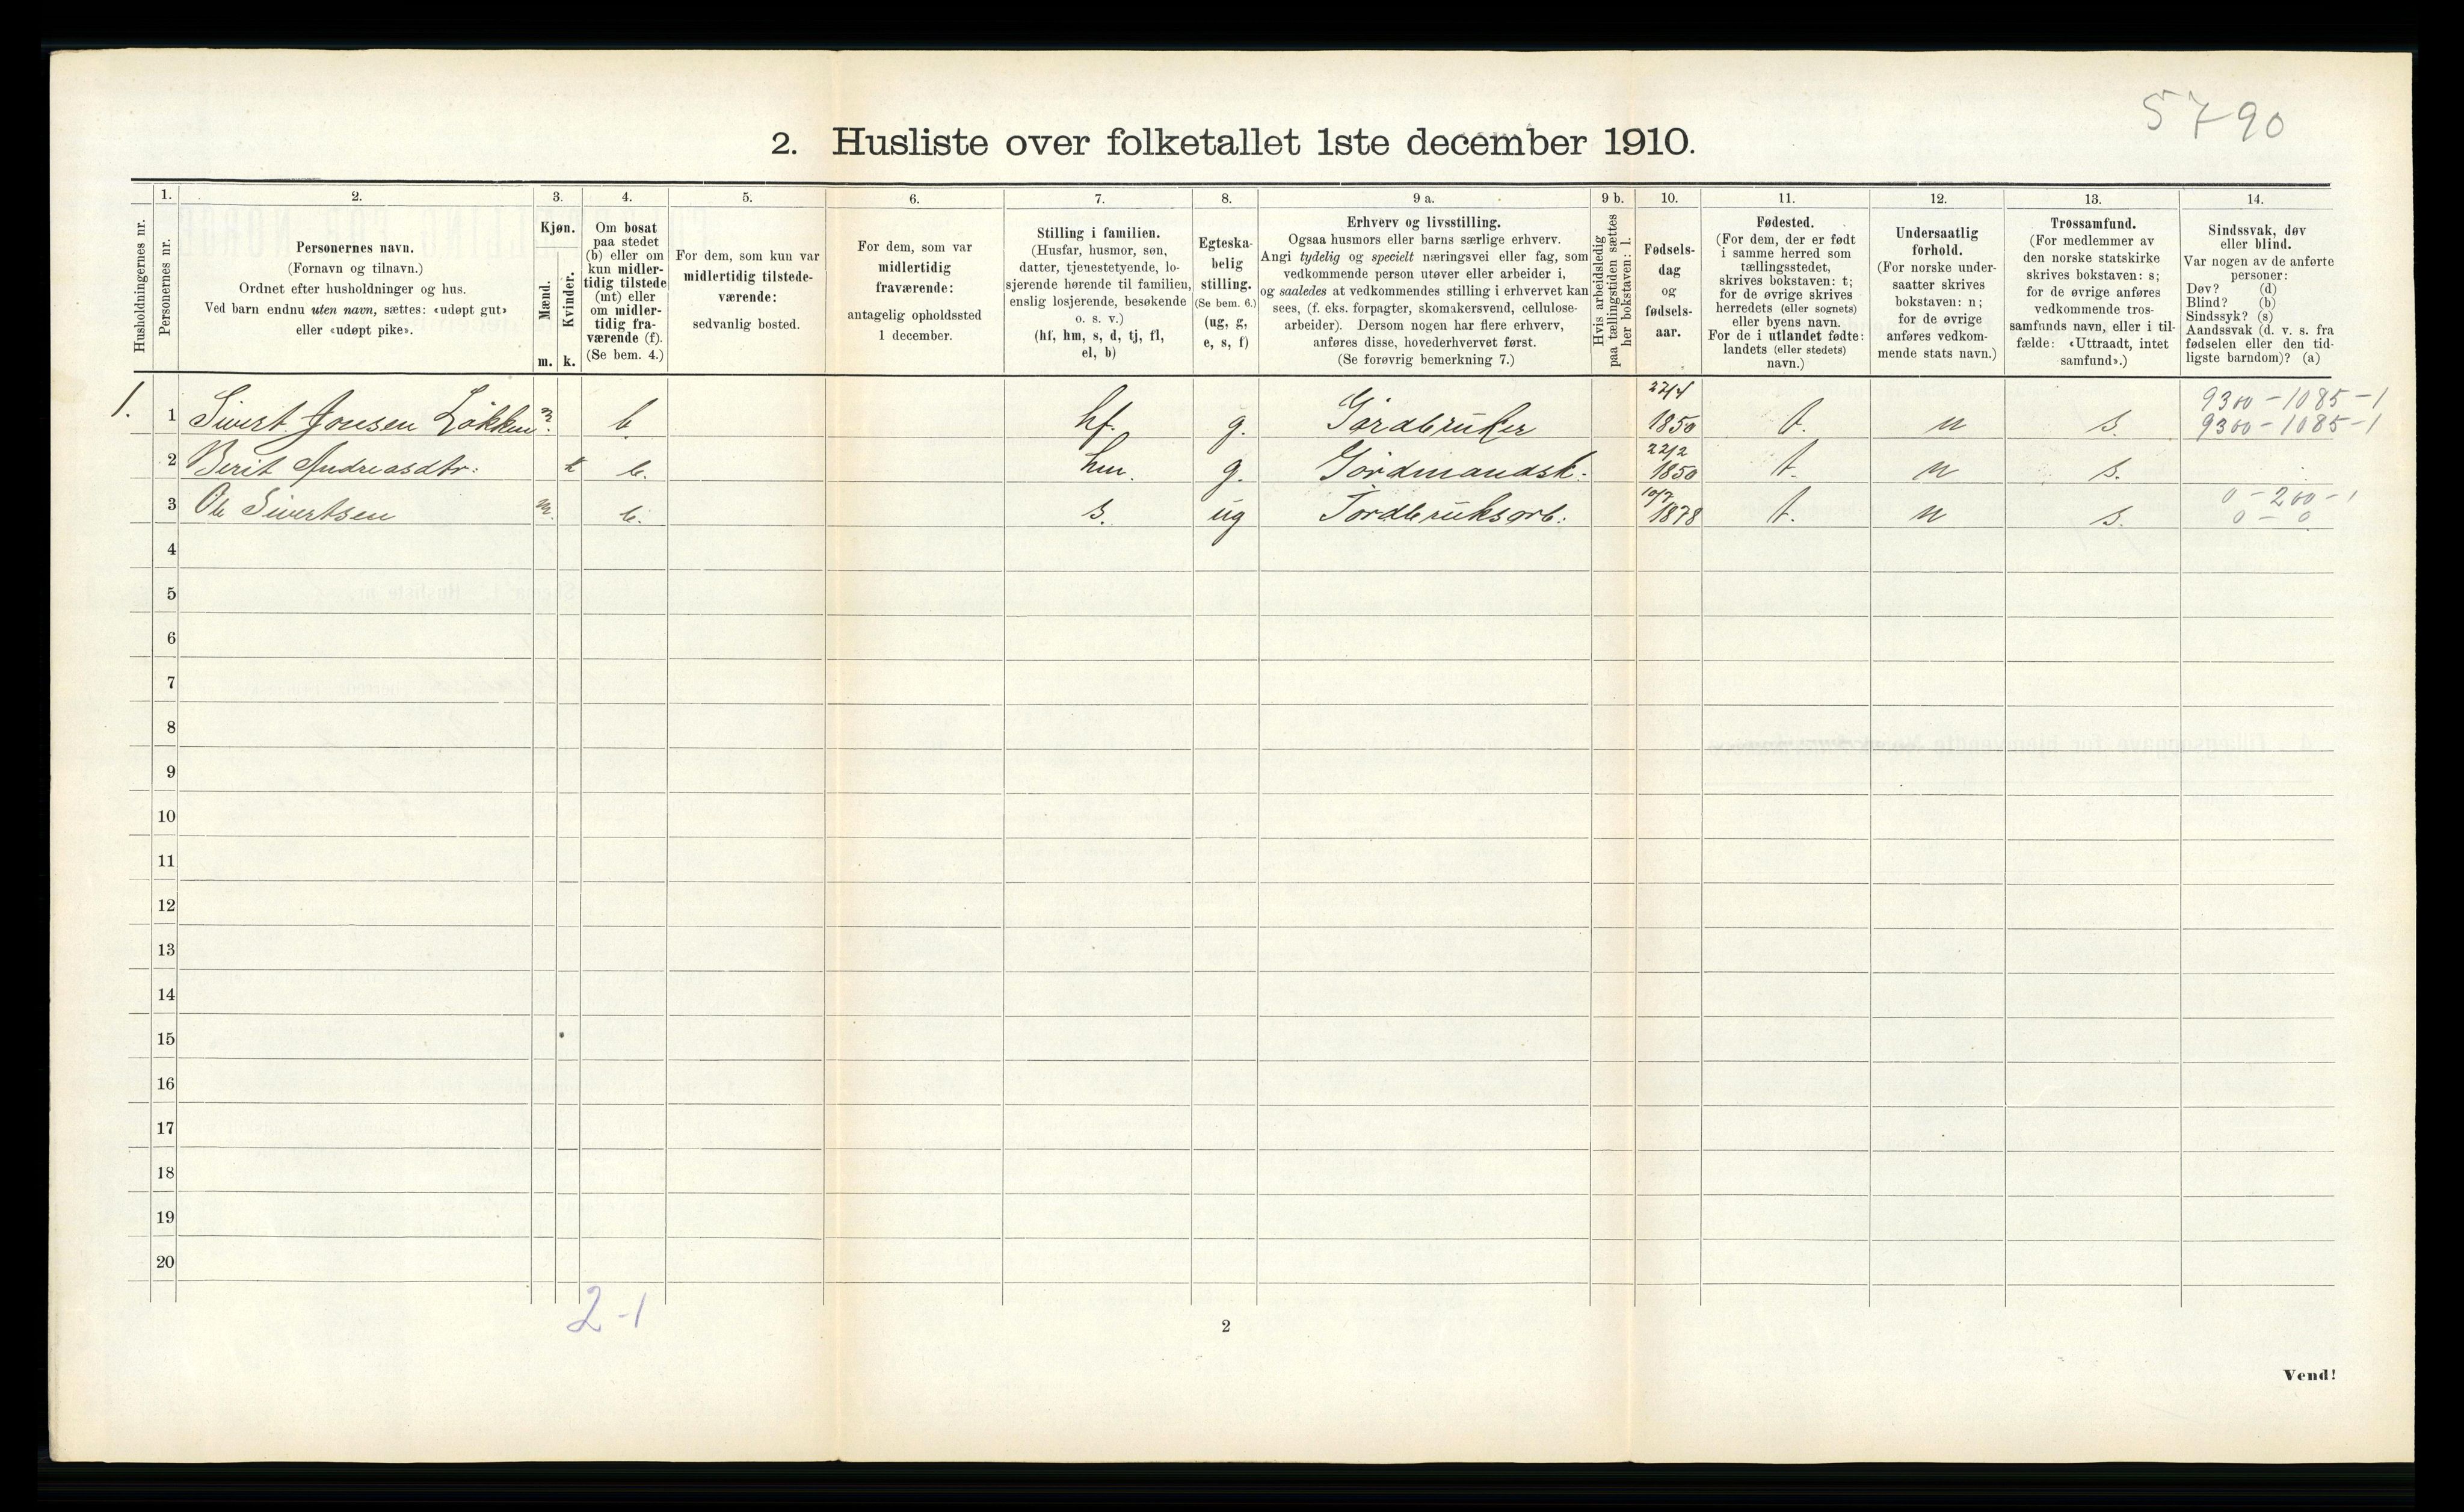 5790
2. Husliste over folketallet 1ste december 1910.
Husholdningernes nr.
1.
Personernes nr.
2.
Personernes navn.
(Fornavn og tilnavn.)
Ordnet efter husholdninger og hus.
Ved barn endnu uten navn, sættes: «udøpt gut»
eller «udøpt pike».
3.
Kjøn.
Mænd.
Kvinder.
m. k.
4.
Om bosat
paa stedet
(b) eller om
kun midler-
tidig tilstede
(mt) eller
om midler-
tidig fra-
værende (f).
(Se bem. 4.)
5.
For dem, som kun var
midlertidig tilstede-
værende:
sedvanlig bosted.
6.
For dem, som var
midlertidig
fraværende:
antagelig opholdssted
1 december.
7.
Stilling i familien.
(Husfar, husmor, søn,
datter, tjenestetyende, lo-
sjerende hørende til familien,
enslig losjerende, besøkende
o. s. v.)
(hf, hm, s, d, tj, fl,
el, b)
8.
Egteska-
belig
stilling.
(Se bem. 6.)
(ug, g,
e, s, f)
9 a.
Erhverv og livsstilling.
Ogsaa husmors eller barns særlige erhverv.
Angi tydelig og specielt næringsvei eller fag, som
vedkommende person utøver eller arbeider i,
og saaledes at vedkommendes stilling i erhvervet kan
sees, (f. eks. forpagter, skomakersvend, cellulose-
arbeider). Dersom nogen har flere erhverv,
anføres disse, hovederhvervet først.
(Se forøvrig bemerkning 7.)
9 b.
Hvis arbeidsledig
paa tællingstiden sættes
her bokstaven: l.
10.
Fødsels-
dag
og
fødsels-
aar.
11.
Fødested.
(For dem, der er født
i samme herred som
tællingsstedet,
skrives bokstaven: t;
for de øvrige skrives
herredets (eller sognets)
eller byens navn.
For de i utlandet fødte:
landets (eller stedets)
navn.)
12.
Undersaatlig
forhold.
(For norske under-
saatter skrives
bokstaven: n;
for de øvrige
anføres vedkom-
mende stats navn.)
13.
Trossamfund.
(For medlemmer av
den norske statskirke
skrives bokstaven: s;
for de øvrige anføres
vedkommende tros-
samfunds navn, eller i til-
fælde: «Uttraadt, intet
samfund».)
14.
Sindssvak, døv
eller blind.
Var nogen av de anførte
personer:
Døv? (d)
Blind? (b)
Sindssyk? (s)
Aandssvak (d. v. s. fra
fødselen eller den tid-
ligste barndom)? (a)
9300-1085-1
1. 1 Sivert Jonsen Løkken m. b. hf. g. Gårdbruker 22/4 1850 t. n s. 9300-1085-1
2 Berit Andreasdtr: k b. hm. g. Gårdmandsk. 22/2 1850 t. n s.
0-200-1
3 Ole Sivertsen m. b. s. ug Jordbruksarb. 10/7 1878 t. n s. 0-0
4
5
6
7
8
9
10
11
12
13
14
15
16
17
18
19
20
2-1
2
Vend!